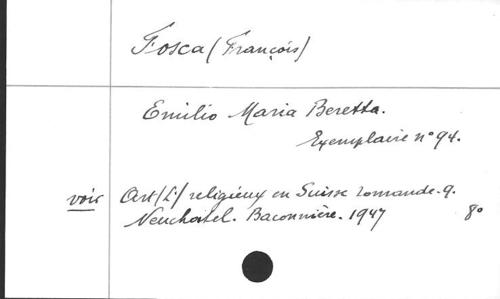 Fosca (François)
Emilio Maria Beretta.
Exemplaire n° 94.
voir Art (L') religieux en Suisse romande. 9.
Neuchatel. Baconnière. 1947 8°